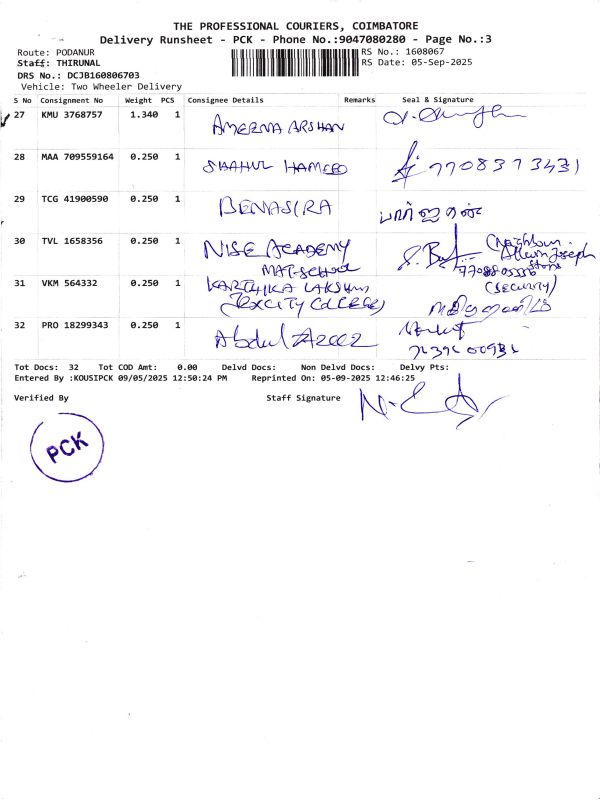 THE PROFESSIONAL COURIERS, COIMBATORE
Delivery Runsheet - PCK - Phone No.:9047080280 - Page No.:3
Route: PODANUR
Staff: THIRUNAL
DRS No.: DCJB160806703
Vehicle: Two Wheeler Delivery
RS No.: 1608067
RS Date: 05-Sep-2025
S No Consignment No Weight PCS Consignee Details Remarks Seal & Signature
27 KMU 3768757 1.340 1 AMEENA ARSHAN
28 MAA 709559164 0.250 1 SHAHUL HAMEED 7708373431
29 TCG 41900590 0.250 1 BENASIRA
30 TVL 1658356 0.250 1 NISE ACADEMY
MAT-SCHOOL
(Neighbour
Joseph
31 VKM 564332 0.250 1 KARTHIKA LAKSHMI
COLLEGE)
(Security)
32 PRO 18299343 0.250 1 Abdul Azeez
Tot Docs: 32 Tot COD Amt: 0.00 Delvd Docs: Non Delvd Docs: Delvy Pts:
Entered By :KOUSIPCK 09/05/2025 12:50:24 PM Reprinted On: 05-09-2025 12:46:25
Verified By Staff Signature
PCK